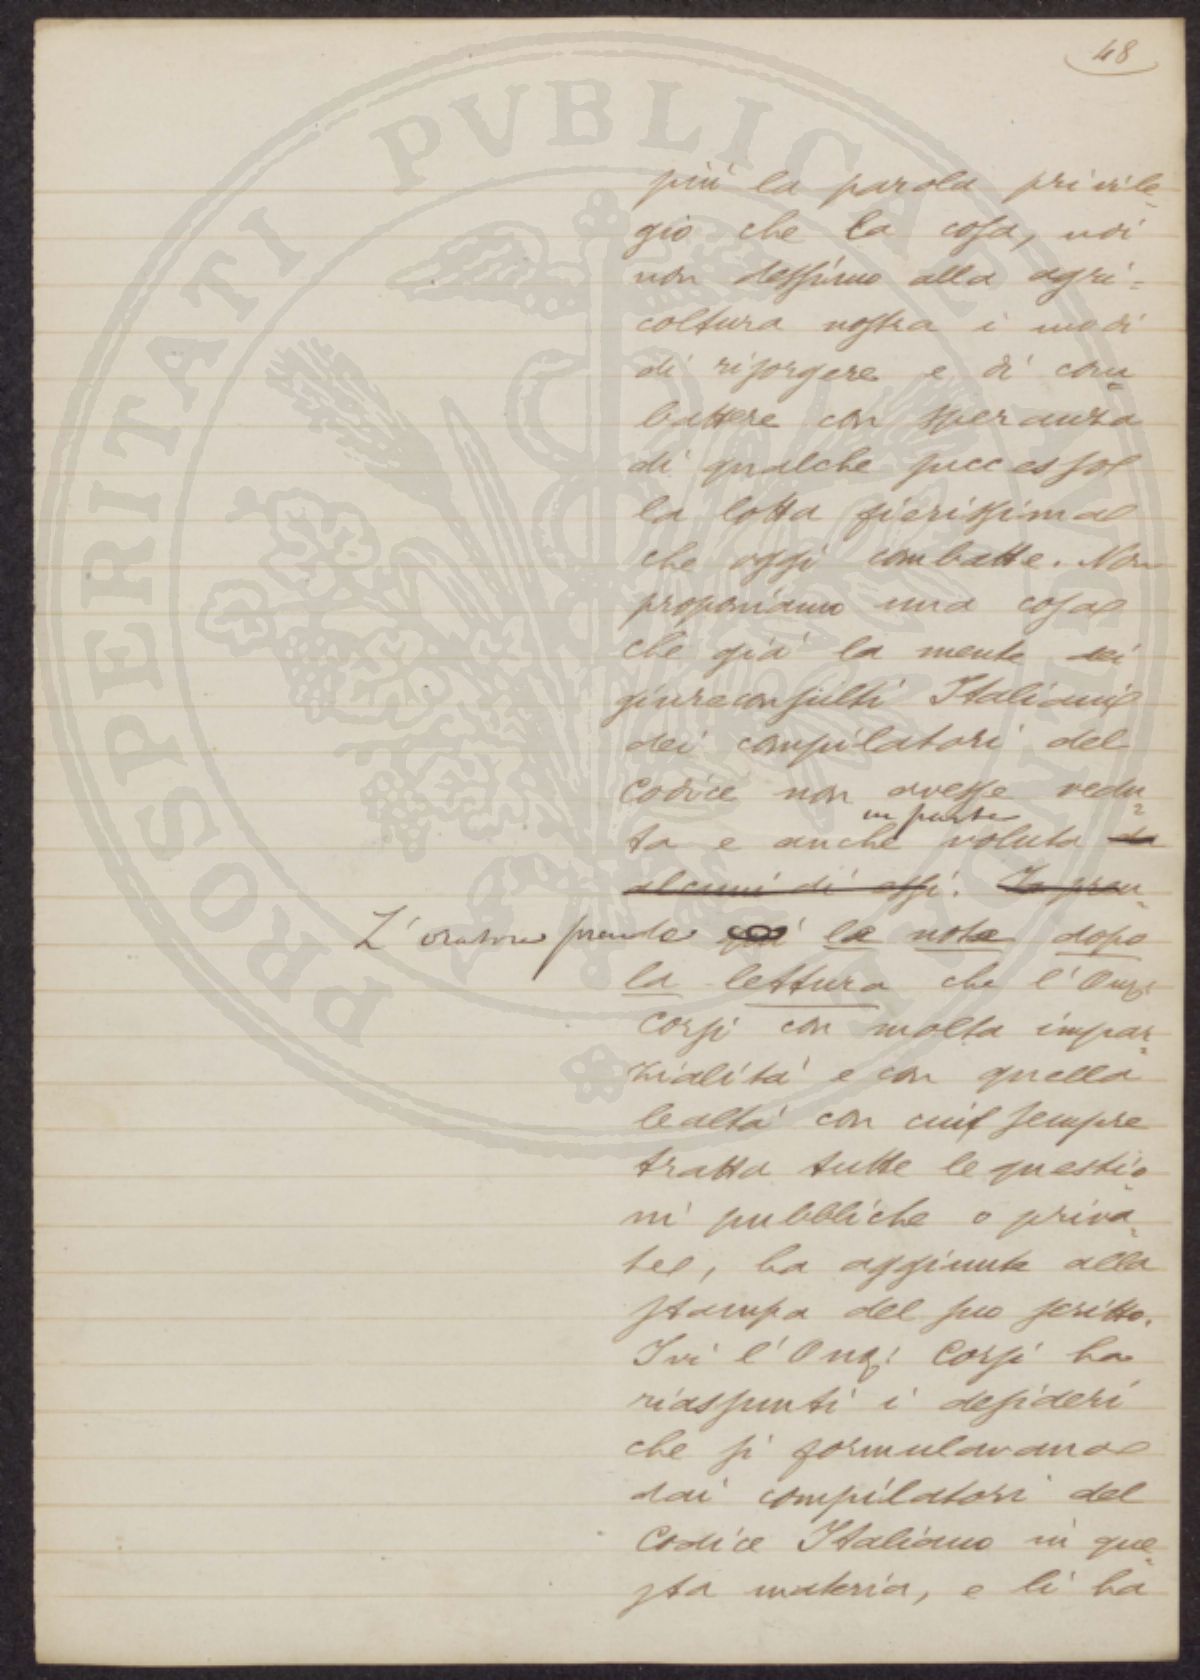 48
più la parola privile=
gio che la cosa, noi
non dessimo alla agri=
coltura nostra i modi
di risorgere e di com=
battere con speranza
di qualche successo
la lotta fierissima
che oggi combatte. Non
proponiamo una cosa
che già la mente dei
giureconsulti Italiani
dei compilatori del
Codice non avesse vedu=
in parte
ta e anche voluta da
alcuni di essi. Io pren=
L'oratore prende qui le note dopo
la lettura che l'Onor:
Corsi con molta impar=
zialità e con quella
lealtà con cui sempre
tratta tutte le questio=
ni pubbliche o priva=
te, ha aggiunte alla
stampa del suo scritto.
Ivi l'Onor: Corsi ha
riassunti i desideri
che si formulavano
dai compilatori del
Codice Italiano in que=
sta materia, e li ha
PROSPERITATI PVBLICAE